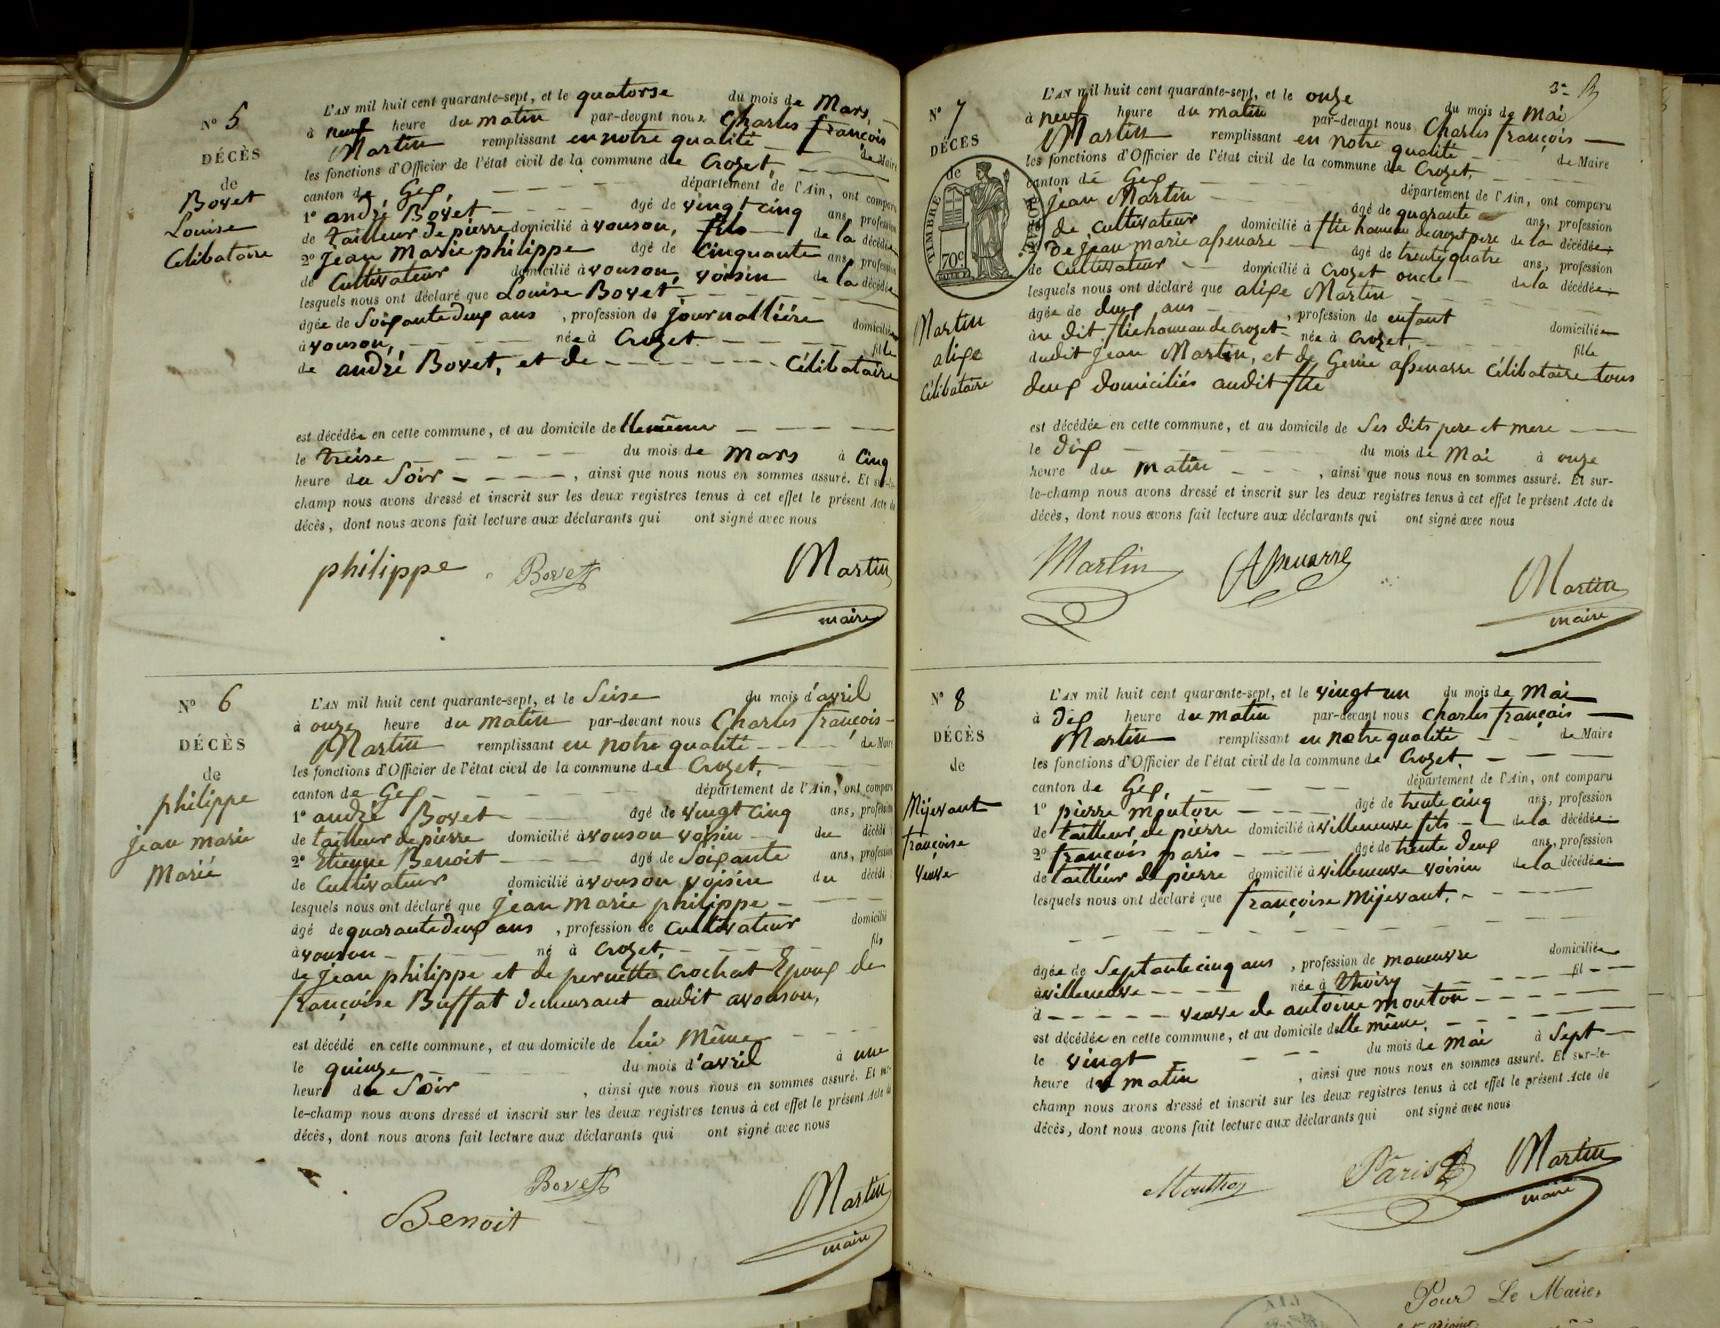 N° 5
DÉCÈS
de
Bovet
Louise
Célibataire
L'AN mil huit cent quarante-sept, et le quatorse du mois de Mars,
à neuf heure du matin par-devant nous Charles françois
Martin remplissant en notre qualité de Maire
les fonctions d'Officier de l'état civil de la commune de Crozet,
canton de Gex, département de l'Ain, ont comparu
1° andré Bovet âgé de vingt cinq ans, profession
de tailleur de pierre domicilié à vouson, fils de la décédée
2° Jean Marie philippe âgé de Cinquante ans, profession
de Cultivateur domicilié à vouson, voisin de la décédée
lesquels nous ont déclaré que Louise Bovet,
âgée de Soixante deux ans, profession de journallière domiciliée
à vouson, née à Crozet fille
de andré Bovet, et de Célibataire
est décédée en cette commune, et au domicile de llemême
le treise du mois de Mars à Cinq
heure du Soir, ainsi que nous nous en sommes assuré. Et sur-le-
champ nous avons dressé et inscrit sur les deux registres tenus à cet effet le présent Acte de
décès, dont nous avons fait lecture aux déclarants qui ont signé avec nous
philippe Bovet Martin
maire
N° 6
DÉCÈS
de
philippe
jean marie
Marié
L'AN mil huit cent quarante-sept, et le Seise du mois d'avril
à onze heure du matin par-devant nous Charles françois
Martin remplissant en notre qualité de Maire
les fonctions d'Officier de l'état civil de la commune de Crozet,
canton de Gex, département de l'Ain, ont comparu
1° andré Bovet âgé de vingt cinq ans, profession
de tailleur de pierre domicilié à vouson voisin du décédé
2° Etienne Benoit âgé de Soixante ans, profession
de Cultivateur domicilié à vouson voisin du décédé
lesquels nous ont déclaré que jean marie philippe
âgé de quarante deux ans, profession de Cultivateur domicilié
à vouson né à Crozet, fils
de jean philippe et de pernette Crochat Epoux de
françoise Buffat demeurant audit avouson,
est décédé en cette commune, et au domicile de lui Même
le quinze du mois d'avril à une
heure du Soir, ainsi que nous nous en sommes assuré. Et sur-
le-champ nous avons dressé et inscrit sur les deux registres tenus à cet effet le présent Acte de
décès, dont nous avons fait lecture aux déclarants qui ont signé avec nous
Bovet
Benoit Martin
maire
N° 7
DÉCÈS
de
TIMBRE
70c
Martin
alixe
Célibataire
L'AN mil huit cent quarante-sept, et le onze du mois de Mai
à neuf heure du matin par-devant nous Charles françois
Martin remplissant en notre qualité de Maire
les fonctions d'Officier de l'état civil de la commune de Crozet,
canton de Gex département de l'Ain, ont comparu
1° Jean Martin âgé de quarante ans, profession
de cultivateur domicilié à flie hameau de crozet pere de la décédée
2° De jean marie apenare âgé de trente quatre ans, profession
de Cultivateur domicilié à Crozet oncle de la décédée
lesquels nous ont déclaré que alixe Martin
âgée de deux ans, profession de enfant domiciliée
au dit flie hameau de crozet née à Crozet, fille
dudit jean Martin, et de Genie apenarre Célibataire tous
deux domiciliés audit flie
est décédée en cette commune, et au domicile de Ses dits pere et mere
le dix du mois de Mai à onze
heure du matin, ainsi que nous nous en sommes assuré. Et sur-
le-champ nous avons dressé et inscrit sur les deux registres tenus à cet effet le présent Acte de
décès, dont nous avons fait lecture aux déclarants qui ont signé avec nous
Martin Martin
maire
N° 8
DÉCÈS
de
Mijevant
françoise
veuve
L'AN mil huit cent quarante-sept, et le vingt un du mois de Mai
à Dix heure du matin par-devant nous Charles françois
Martin remplissant en notre qualité de Maire
les fonctions d'Officier de l'état civil de la commune de Crozet,
canton de Gex, département de l'Ain, ont comparu
1° pierre mouton âgé de trente cinq ans, profession
de tailleur de pierre domicilié à villeneuve fils de la décédée
2° françois paris âgé de trente deux ans, profession
de tailleur de pierre domicilié à villeneuve voisin de la décédée
lesquels nous ont déclaré que françoise Mijevant,
âgée de Septante cinq ans, profession de maneuvre domiciliée
à villeneuve née à thoiry fil
d veuve de antoine mouton
est décédée en cette commune, et au domicile d'elle même,
le vingt du mois de Mai à Sept
heure du matin, ainsi que nous nous en sommes assuré. Et sur-le-
champ nous avons dressé et inscrit sur les deux registres tenus à cet effet le présent Acte de
décès, dont nous avons fait lecture aux déclarants qui ont signé avec nous
Paris Martin
maire
Pour Le Maire,